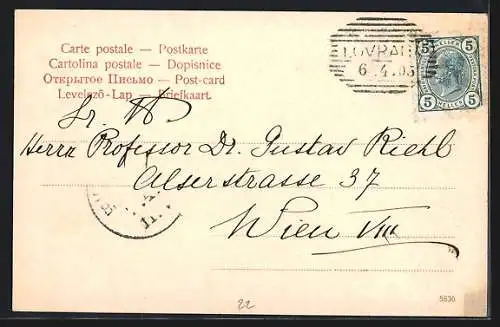 Carte postale — Postkarte
Cartolina postale — Dopisnice
Открытое Письмо — Post-card
Levelező-Lap — Briefkaart.
LOVRANA
6. 4. 05
5 HELLER 5
5 HELLER 5
Sr. W
Herrn Professor Dr. Gustav Riehl
Alserstrasse 37
Wien VIII
5630
22